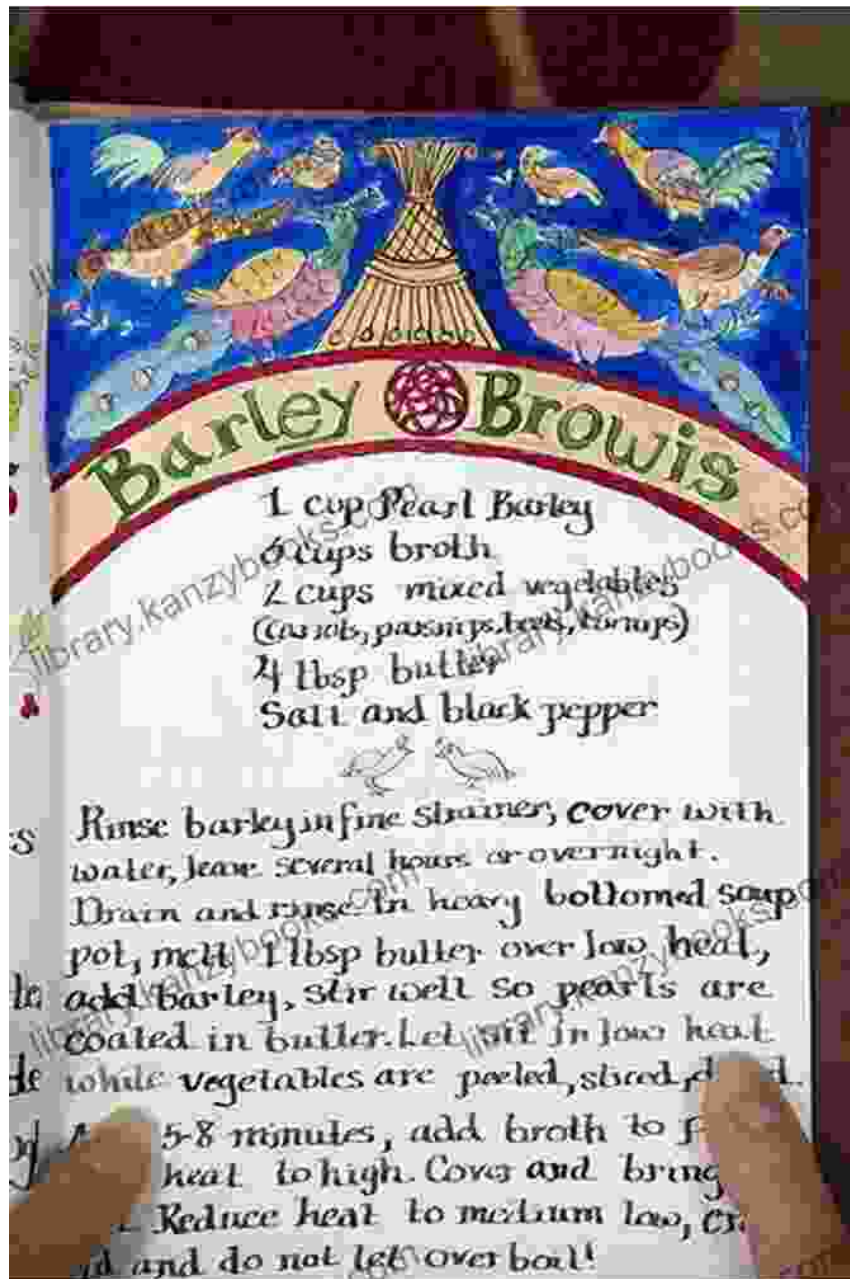 Barley Browis
1 cup Pearl Barley
6 cups broth
2 cups mixed vegetables
(carrots, parsnips, beets, turnips)
4 tbsp butter
Salt and black pepper
Rinse barley in fine strainer, cover with
water, leave several hours or overnight.
Drain and rinse. In heavy bottomed soup
pot, melt 1 tbsp butter over low heat,
add barley, stir well so pearls are
coated in butter. Let sit in low heat
while vegetables are peeled, sliced,
5-8 minutes, add broth to
heat to high. Cover and bring
Reduce heat to medium low,
and do not let over boil!
library.kanzybooks.com
library.kanzybooks.com
library.kanzybooks.com
library.kanzybooks.com